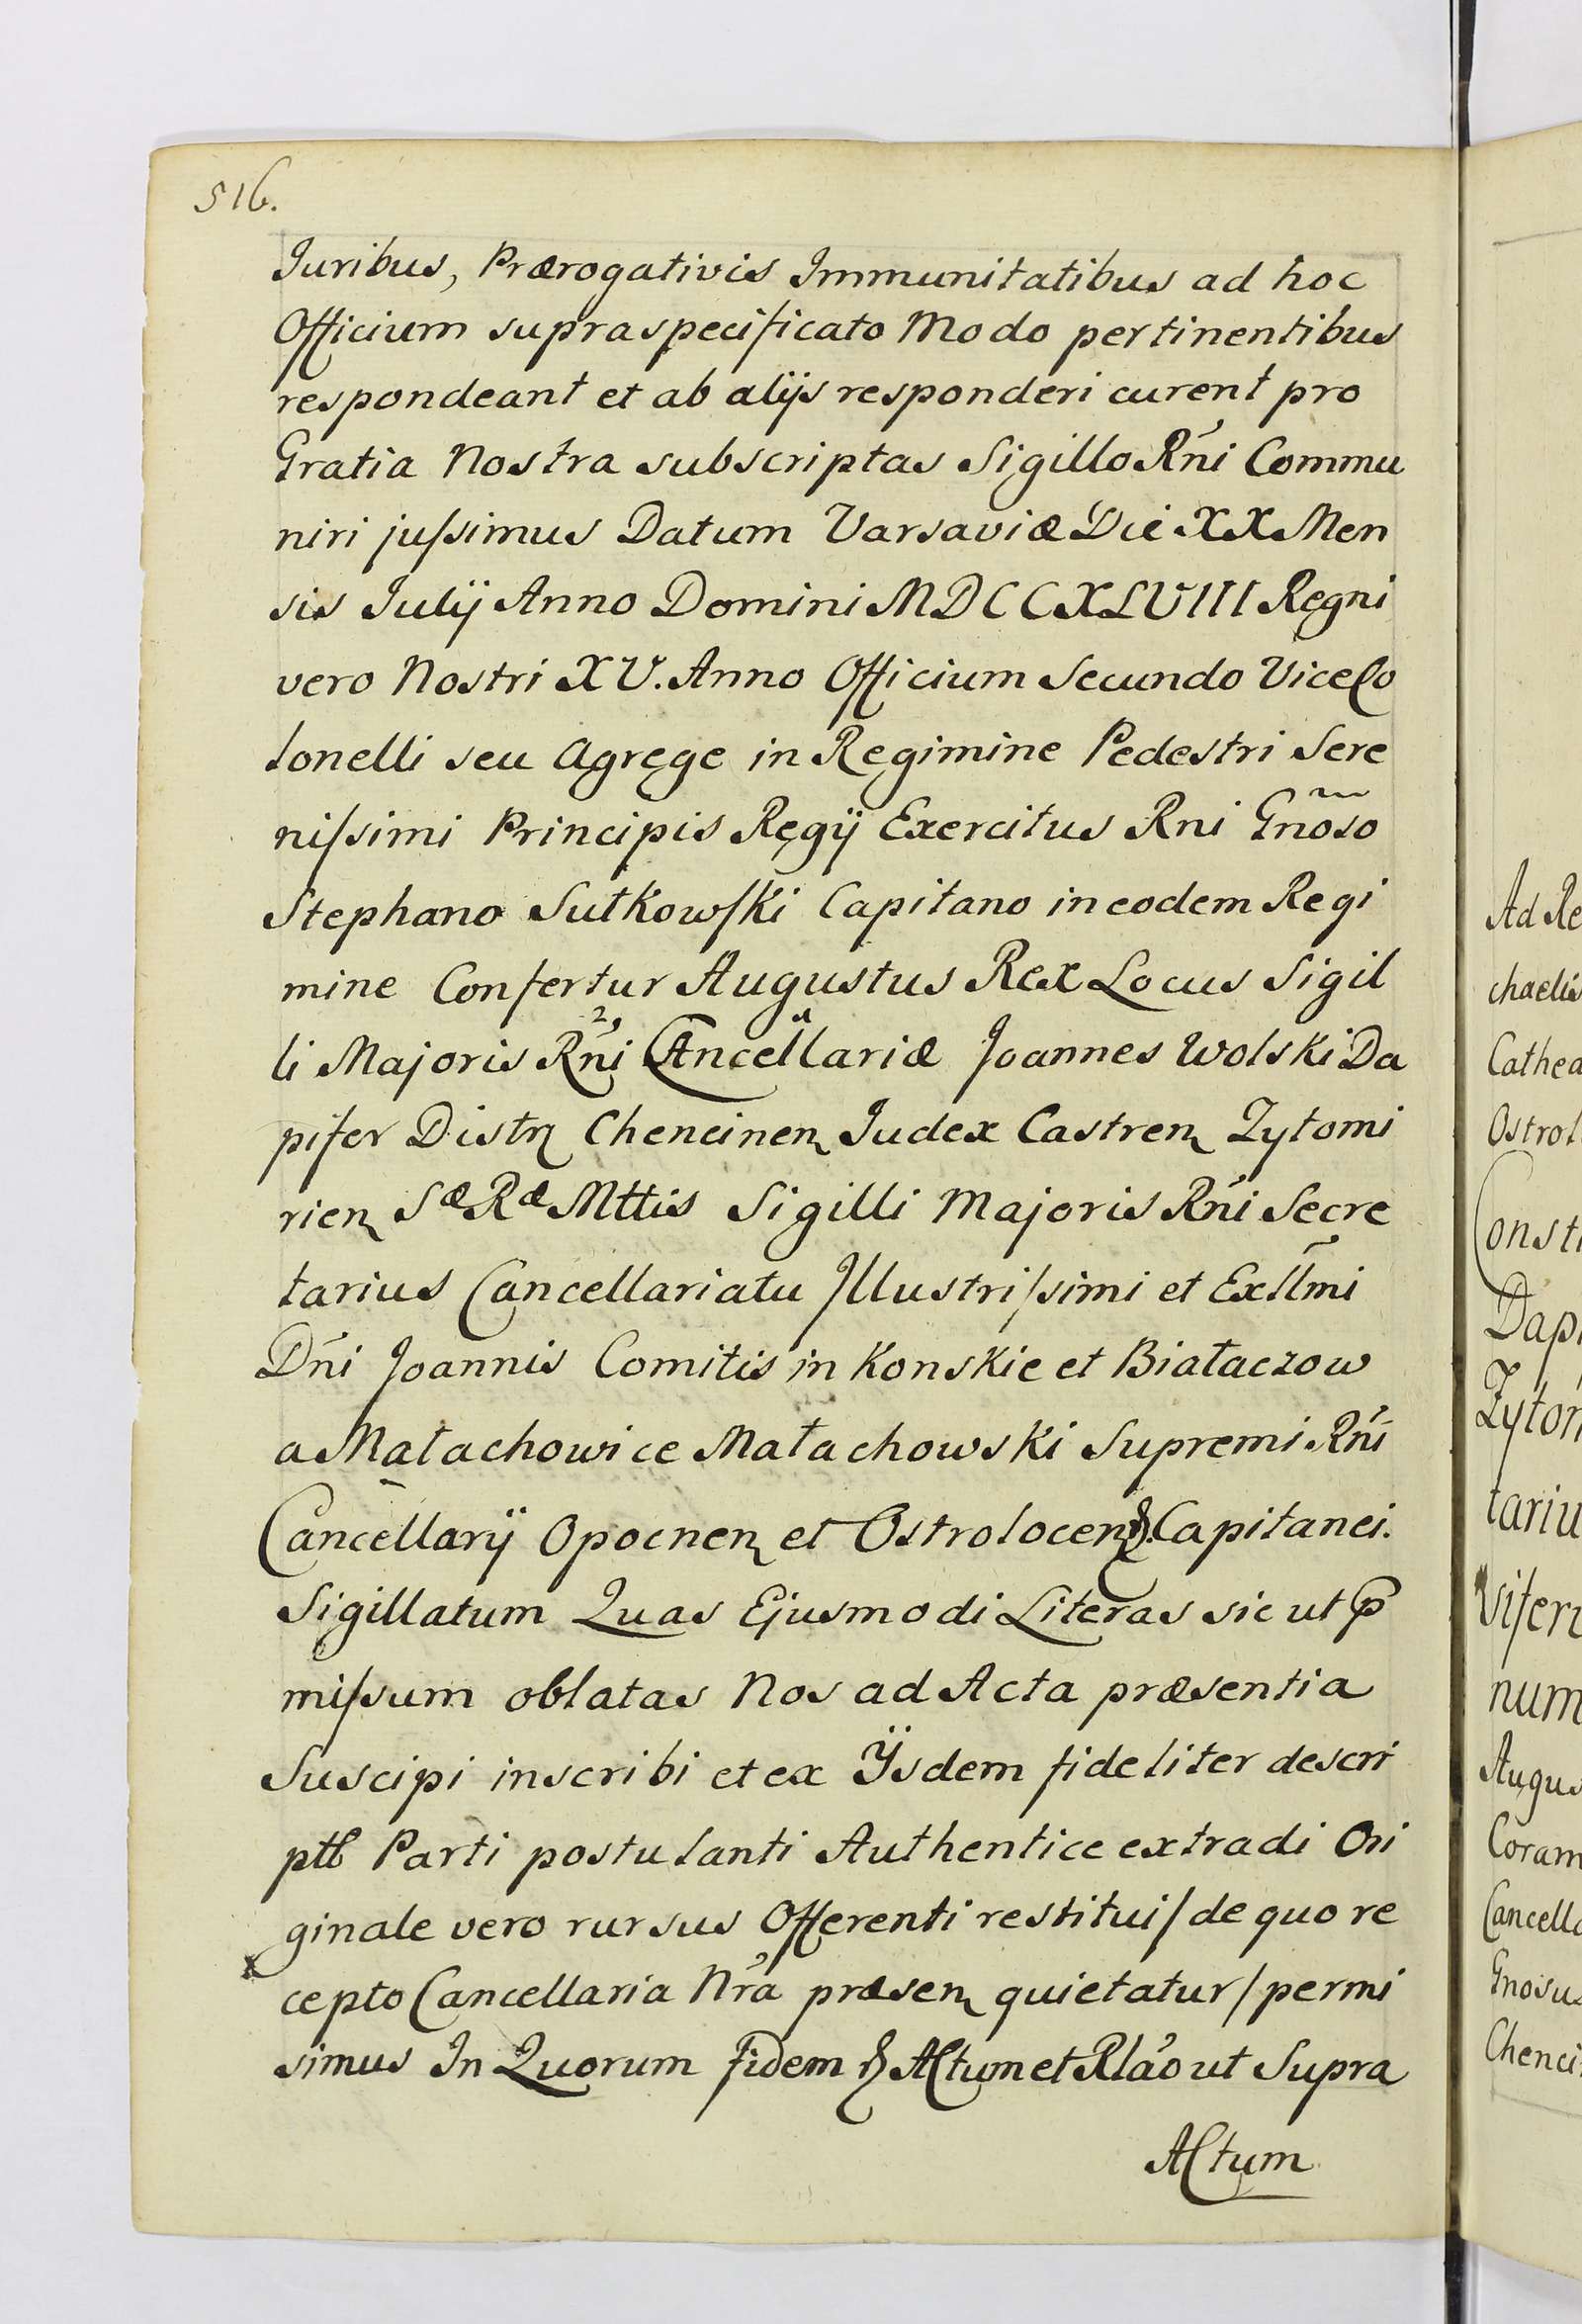 516.
Juribus, Prærogativis Immunitatibus ad hoc
Officium supraspecificato Modo pertinentibus
respondeant et ab alijs responderi curent pro
Gratia Nostra subscriptas Sigillo Rńi Commu
niri jussimus Datum Varsaviæ Die XX Men
sis Julij Anno Domini MDCCXLVIII Regni
vero Nostri XV. Anno Officium Secundo ViceCo
lonelli seu Agrege in Regimine Pedestri Sere
nissimi Principis Regij Exercitus Rni Gnõso
Stephano Sułkowski Capitano in eodem Regi
mine Confertur Augustus Rex Locus Sigil
li Majoris Rńi Cancellariæ Joannes Wolski Da
pifer Distr Chencinen Judex Castren Zytomi
rien Sæ Ræ Mttis Sigilli Majoris Rńi Secre
tarius Cancellariatu Jllustrissimi et Exllm̃i
Dńi Joannis Comitis in Konskie et Białaczow
a Małachowice Małachowski Supremi Rńi
Cancellarij Opocnen et Ostrolocen Capitanei.
Sigillatum Quas Ejusmodi Literas sic ut p
missum oblatas Nos ad Acta præsentia
Suscipi inscribi et ex Ÿsdem fideliter descri
ptb Parti postulanti Authentice extradi Ori
ginale vero rursus Offerenti restitui / de quo re
cepto Cancellaria Nr̃a præsen quietatur / permi
simus In Quorum fidem & Actum et Rlão ut Supra
Actum
Ad Re
chaelis
Cathed
Ostrol
Consti
Dapi
Zytom
tariu
num
Augus
Coram
Cancella
Gnosus
Chenci